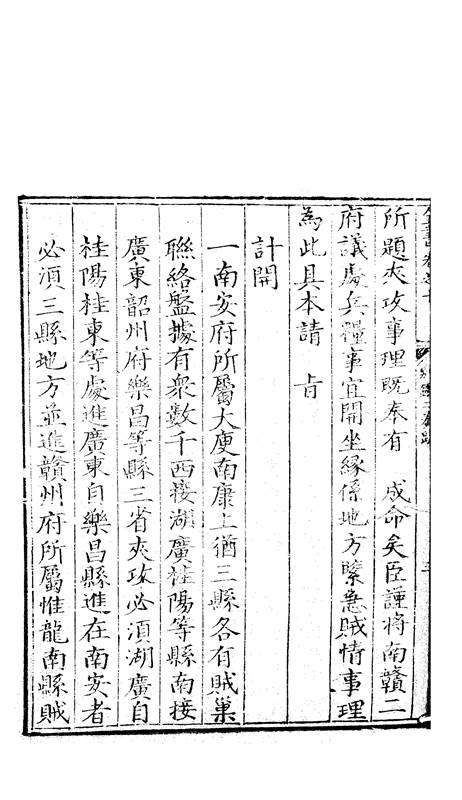 所題夾攻事理既奉有　成命矣臣謹將南贛二
府議處兵糧事宜開坐緣係地方緊急賊情事理
為此具本請　旨
計開
一南安府所屬大庾南康上猶三縣各有賊巢
聯絡盤據有衆數千西接湖廣桂陽等縣南接
廣東韶州府樂昌等縣三省夾攻必須湖廣自
桂陽桂東等處進廣東自樂昌縣進在南安者
必須三縣地方並進贛州府所屬惟龍南縣賊